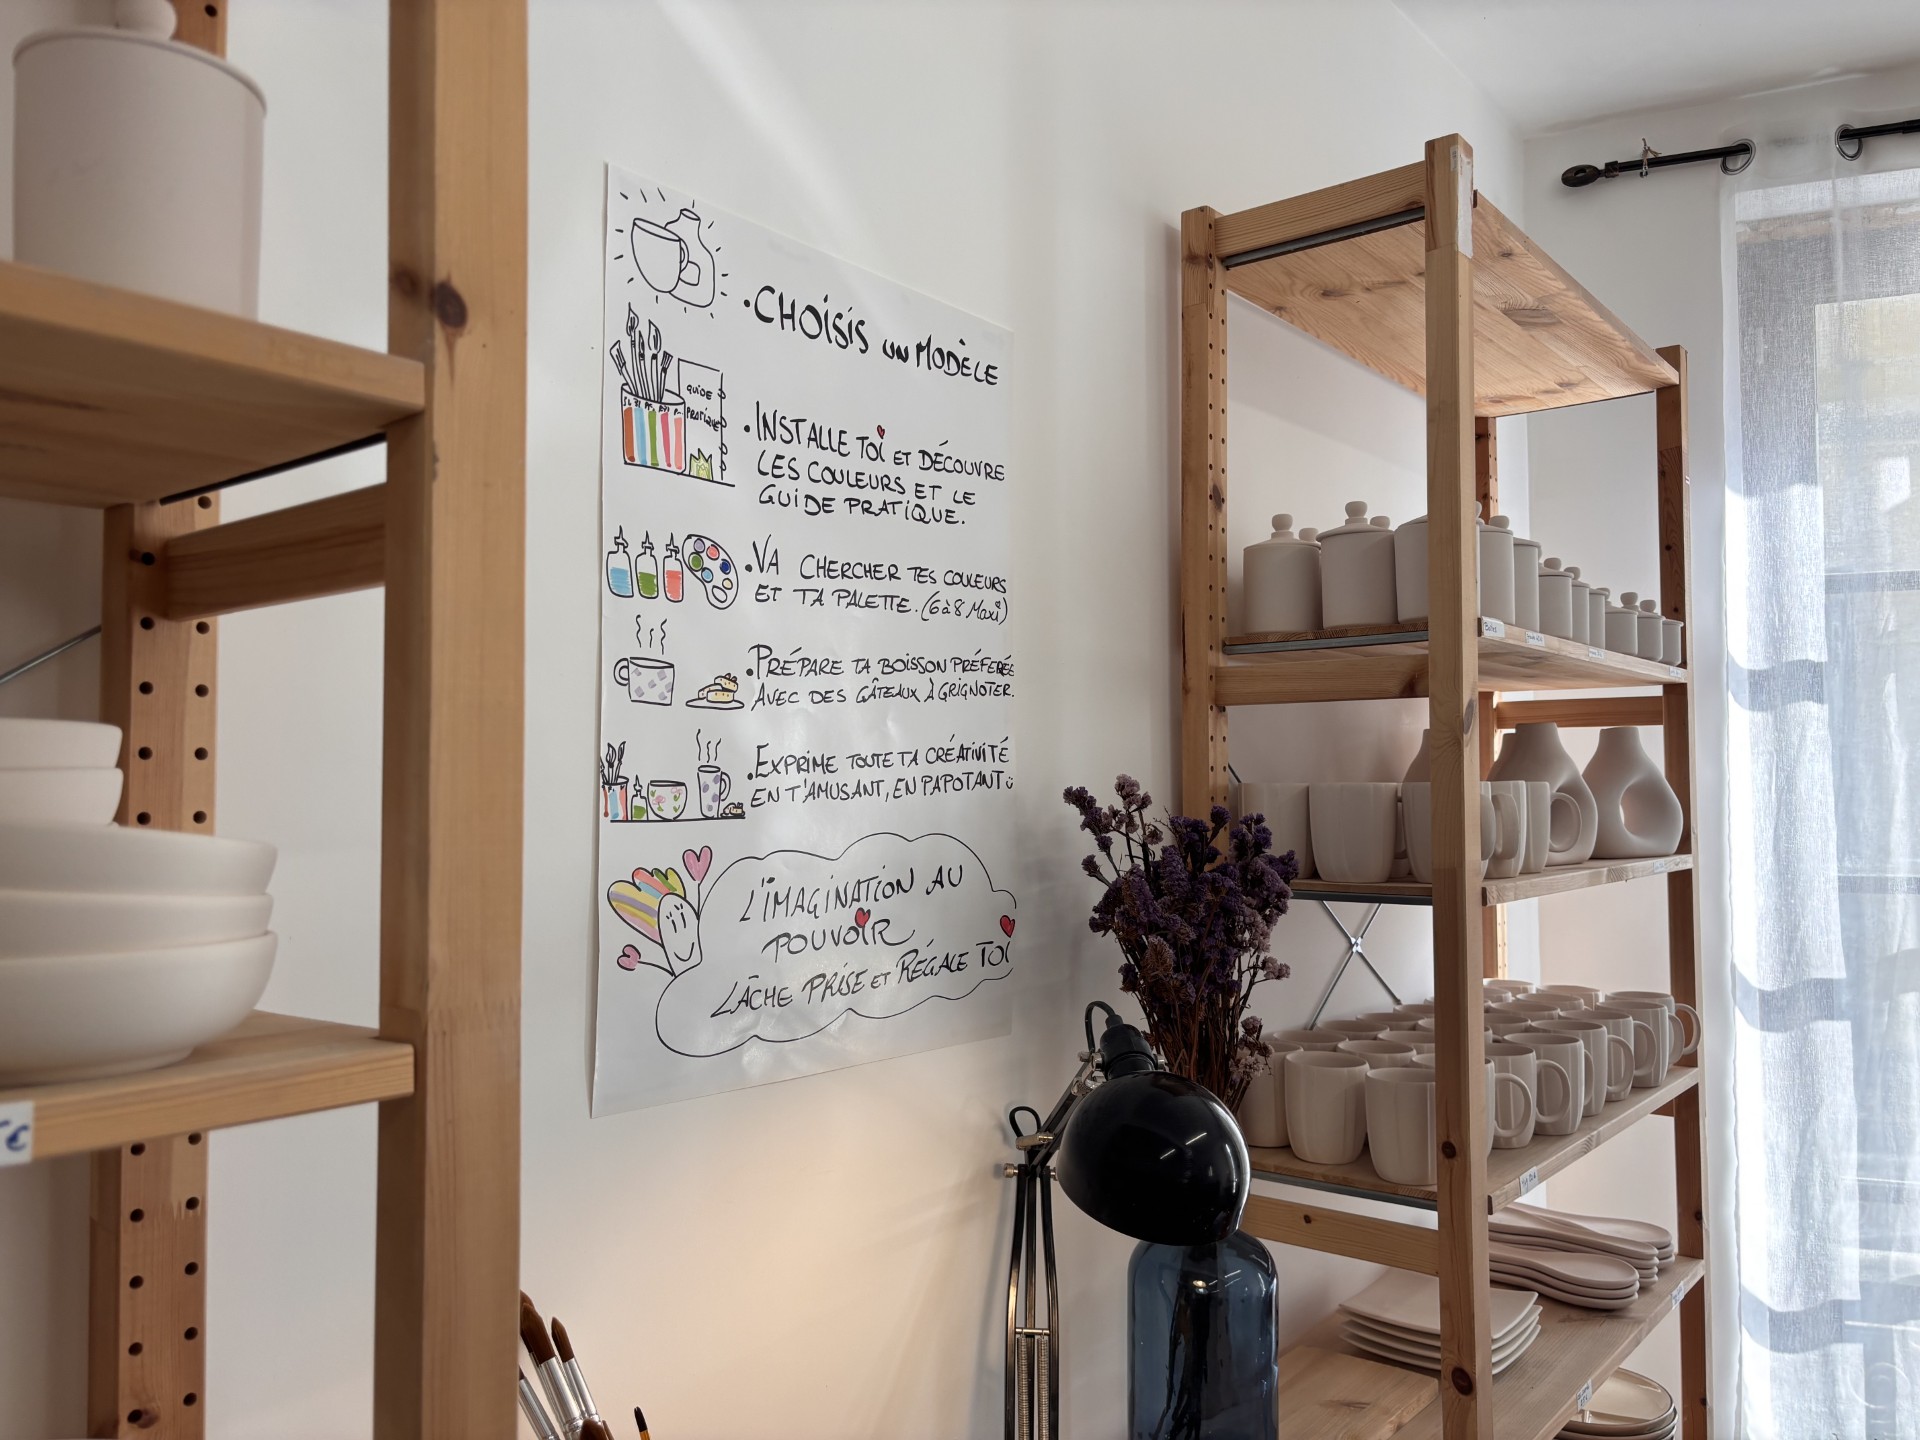 • CHOISIS UN MODÈLE
GUIDE
PRATIQUE
• INSTALLE TOI ET DÉCOUVRE
LES COULEURS ET LE
GUIDE PRATIQUE.
• VA CHERCHER TES COULEURS
ET TA PALETTE. (6 à 8 Maxi)
• PRÉPARE TA BOISSON PRÉFERÉE
AVEC DES GÂTEAUX À GRIGNOTER.
• EXPRIME TOUTE TA CRÉATIVITÉ
EN T'AMUSANT, EN PAPOTANT
L'IMAGINATION AU
POUVOIR
LÂCHE PRISE ET RÉGALE TOI